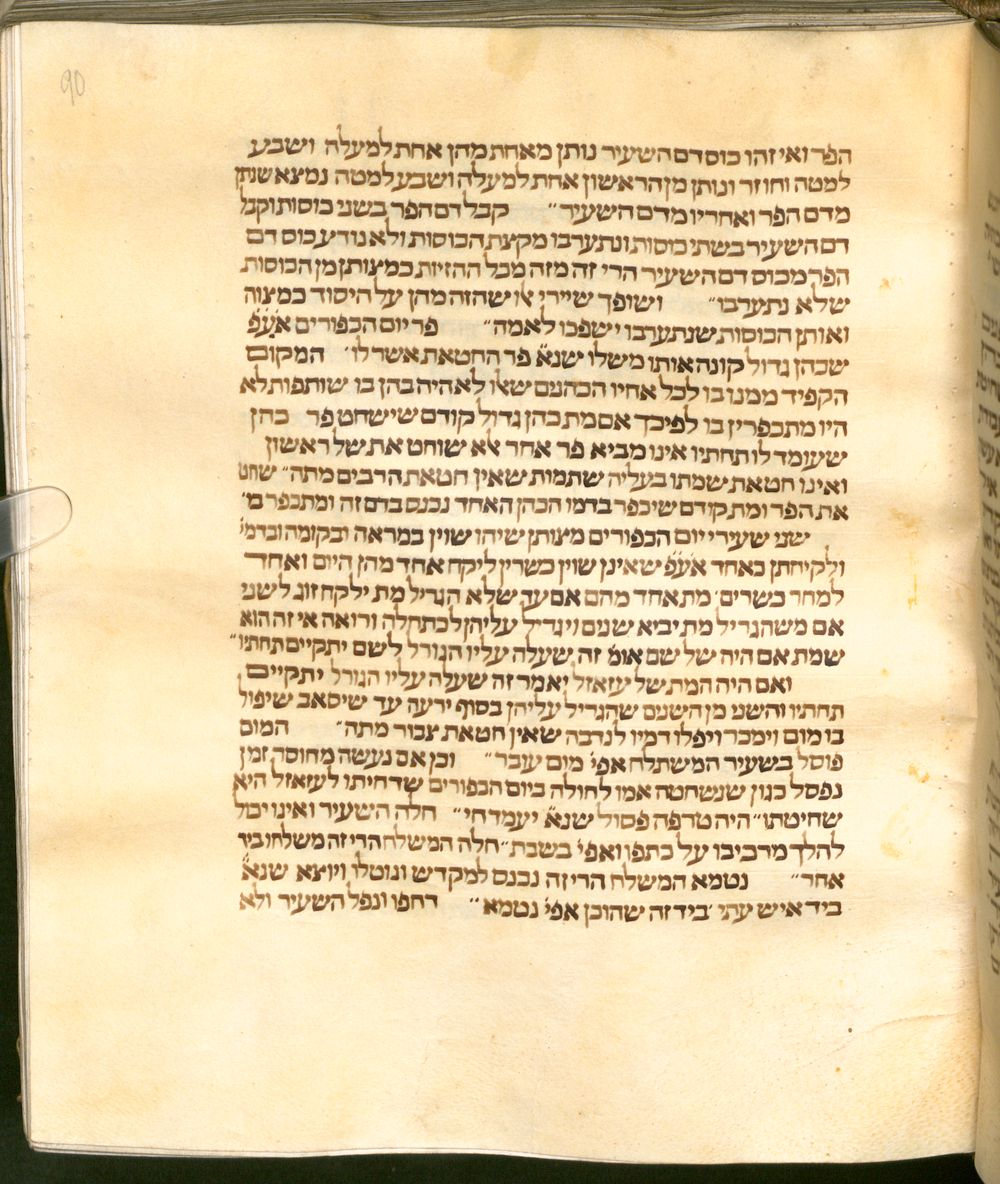 90
הפר ואי זהו כוס דם השעיר נותן מאחת מהן אחת למעלה ושבע
למטה וחוזר ונותן מן הראשון אחת למעלה ושבע למטה נמצא שנתן
מדם הפר ואחריו מדם השעיר״ קבל דם הפר בשני כוסות וקבל
דם השעיר בשתי כוסות ונתערבו מקצת הכוסות ולא נודע כוס דם
הפר מכוס דם השעיר הרי זה מזה מכל ההזיות כמצותן מן הכוסות
שלא נתערבו״ ושופך שיירי אלו שהזה מהן על היסוד כמצוה
ואותן הכוסות שנתערבו ישפכו לאמה״ פר יום הכפורים אע׳׳פ
שכהן גדול קונה אותו משלו שנא׳ פר החטאת אשר לו׳ המקום
הקפיד ממנו בו לכל אחיו הכהנים שאלו לא היה בהן בו שותפות לא
היו מתכפרין בו לפיכך אם מת כהן גדול קודם שישחט פר כהן
שעומד לו תחתיו אינו מביא פר אחר אלא שוחט את של ראשון
ואינו חטאת שמתו בעליה שתמות שאין חטאת הרבים מתה״ שוחט
את הפר ומת קודם שיכפר בדמו הכהן האחד נכנס בדם זה ומתכפר בו׳
שני שעירי יום הכפורים מצותן שיהו שוין במראה ובקומה ובדמי׳
ולקיחתן כאחד אע׳׳פ שאינן שוין כשרין ליקח אחד מהן היום ואחד
למחר כשרים׳ מת אחד מהם אם עד שלא הגריל מת ילקח זוג לשני
אם משהגריל מת יביא שנים ויגריל עליהן לכתחלה ורואה אי זה הוא
שמת אם היה של שם אומ׳ זה שעלה עליו הגורל לשם יתקיים תחתיו״
ואם היה המת של עזאזל יאמר זה שעלה עליו הגורל יתקיים
תחתיו והשני מן השנים שהגריל עליהן בסוף ירעה עד שיסאב שיפול
בו מום וימכר ויפלו דמיו לנדבה שאין חטאת צבור מתה״ המום
פוסל בשעיר המשתלח אפי׳ מום עובר״ וכן אם נעשה מחוסר זמן
נפסל כגון שנשחטה אמו לחולה ביום הכפורים שדחיתו לעזאזל היא
שחיטתו״ היה טרפה פסול שנא׳ יעמד חי״ חלה השעיר ואינו יכול
להלך מרכיבו על כתפו ואפי׳ בשבת״ חלה המשלח הרי זה משלחו ביד
אחר״ נטמא המשלח הרי זה נכנס למקדש ונוטלו ויוצא שנא׳
ביד איש עתי׳ ביד זה שהוכן אפי׳ נטמא״ דחפו ונפל השעיר ולא